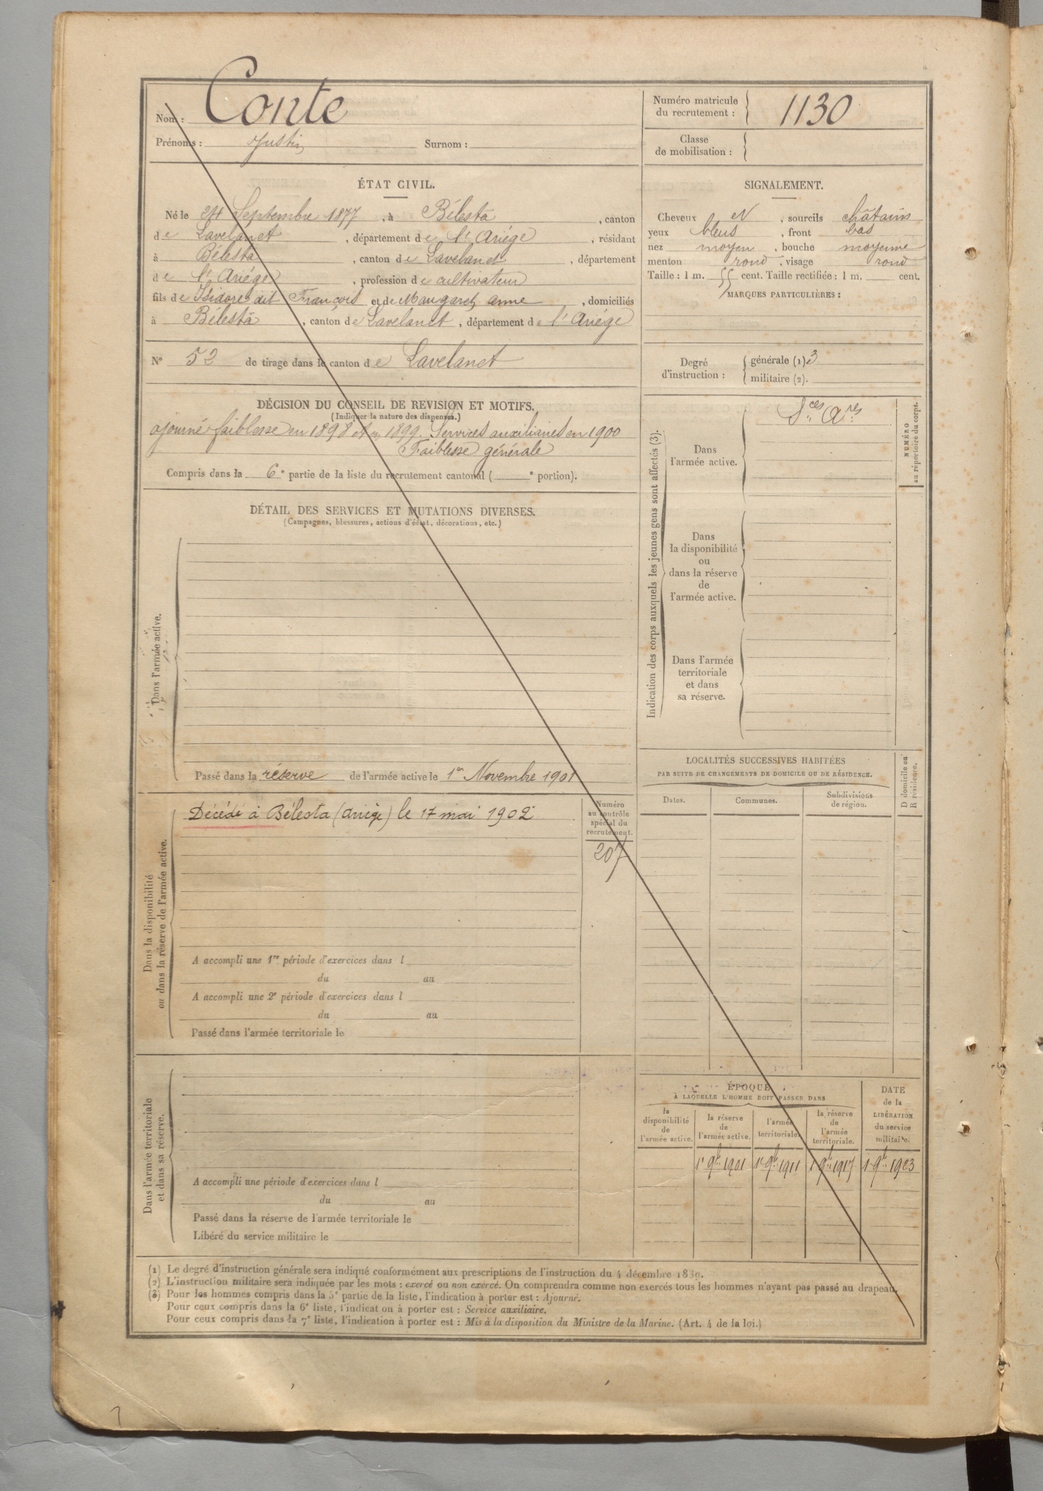 Nom : Conte
Prénoms : Justin Surnom :
Numéro matricule
du recrutement : 1130
Classe
de mobilisation :
ÉTAT CIVIL.
Né le 24 Septembre 1877, à Bélesta, canton
de Lavelanet, département de l'Ariège, résidant
à Bélesta, canton de Lavelanet, département
de l'Ariège, profession de cultivateur
fils de Isidore dit François et de Maugaret, anne, domiciliés
à Bélesta, canton de Lavelanet, département de l'Ariège
N° 52 de tirage dans le canton de Lavelanet
SIGNALEMENT.
Cheveux et, sourcils châtains
yeux bleus, front bas
nez moyen, bouche moyenne
menton rond, visage rond
Taille : 1 m. 55 cent. Taille rectifiée : 1 m. cent.
MARQUES PARTICULIÈRES :
Degré
d'instruction :
générale (1) 3
militaire (2).
DÉCISION DU CONSEIL DE REVISION ET MOTIFS.
(Indiquer la nature des dispenses.)
ajourné faiblesse en 1898 et en 1899. Services auxiliaires en 1900
Faiblesse générale
Compris dans la 6e partie de la liste du recrutement cantonal ( e portion).
DÉTAIL DES SERVICES ET MUTATIONS DIVERSES.
(Campagnes, blessures, actions d'éclat, décorations, etc.)
Dans l'armée active.
Passé dans la réserve de l'armée active le 1er Novembre 1901
Indication des corps auxquels les jeunes gens sont affectés (3).
Sces Ares
Dans
l'armée active.
Dans
la disponibilité
ou
dans la réserve
de
l'armée active.
Dans l'armée
territoriale
et dans
sa réserve.
NUMÉRO
au répertoire du corps.
Dans la disponibilité
ou dans la réserve de l'armée active.
Décédé à Bélesta (Ariège) le 17 mai 1902
Numéro
au contrôle
spécial du
recrutement.
207
A accompli une 1re période d'exercices dans l
du au
A accompli une 2e période d'exercices dans l
du au
Passé dans l'armée territoriale le
LOCALITÉS SUCCESSIVES HABITÉES
PAR SUITE DE CHANGEMENTS DE DOMICILE OU DE RÉSIDENCE.
Dates. Communes. Subdivisions
de région.
D domicile ou
R résidence.
Dans l'armée territoriale
et dans sa réserve.
A accompli une période d'exercices dans l
du au
Passé dans la réserve de l'armée territoriale le
Libéré du service militaire le
ÉPOQUE
À LAQUELLE L'HOMME DOIT PASSER DANS
la
disponibilité
de
l'armée active.
la réserve
de
l'armée active.
l'armée
territoriale.
la réserve
de
l'armée
territoriale.
DATE
de la
LIBÉRATION
du service
militaire.
1er 9bre 1901 1er 9bre 1911 1er 9bre 1917 1er 9bre 1923
(1) Le degré d'instruction générale sera indiqué conformément aux prescriptions de l'instruction du 4 décembre 1889.
(2) L'instruction militaire sera indiquée par les mots : exercé ou non exercé. On comprendra comme non exercés tous les hommes n'ayant pas passé au drapeau.
(3) Pour les hommes compris dans la 5e partie de la liste, l'indication à porter est : Ajourné.
Pour ceux compris dans la 6e liste, l'indication à porter est : Service auxiliaire.
Pour ceux compris dans la 7e liste, l'indication à porter est : Mis à la disposition du Ministre de la Marine. (Art. 4 de la loi.)